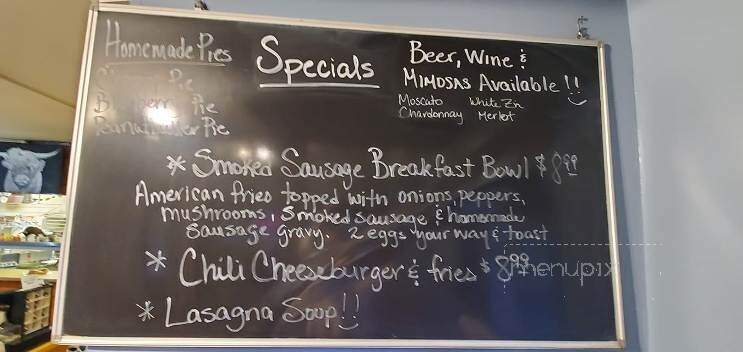 Homemade Pies
Pie
Pie
Peanut Butter Pie
Specials
Beer, Wine &
Mimosas Available!!
Moscato White Zn
Chardonnay Merlot
* Smoked Sausage Breakfast Bowl $8.99
American fries topped with onions, peppers,
mushrooms, smoked sausage & homemade
sausage gravy. 2 eggs your way & toast
* Chili Cheeseburger & fries $8.99
menupix
* Lasagna Soup!!